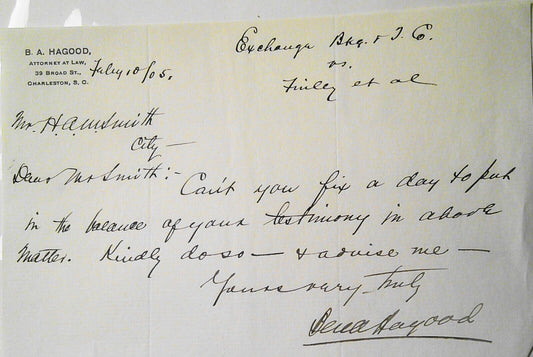 B. A. HAGOOD,
ATTORNEY AT LAW,
39 BROAD ST.,
CHARLESTON, S. C.
July 10/05.
Exchange Bkg. & T. C.
vs.
Finley et al
Mr. H.A.M. Smith
City —
Dear Mr Smith:- Can't you fix a day to put
in the balance of your testimony in above
matter. Kindly do so — & advise me —
Yours very truly
Hagood